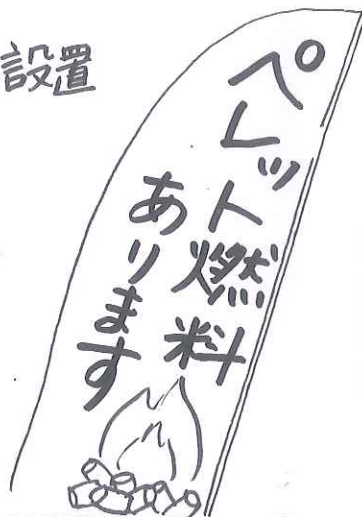 設置
ペレット燃料
あります